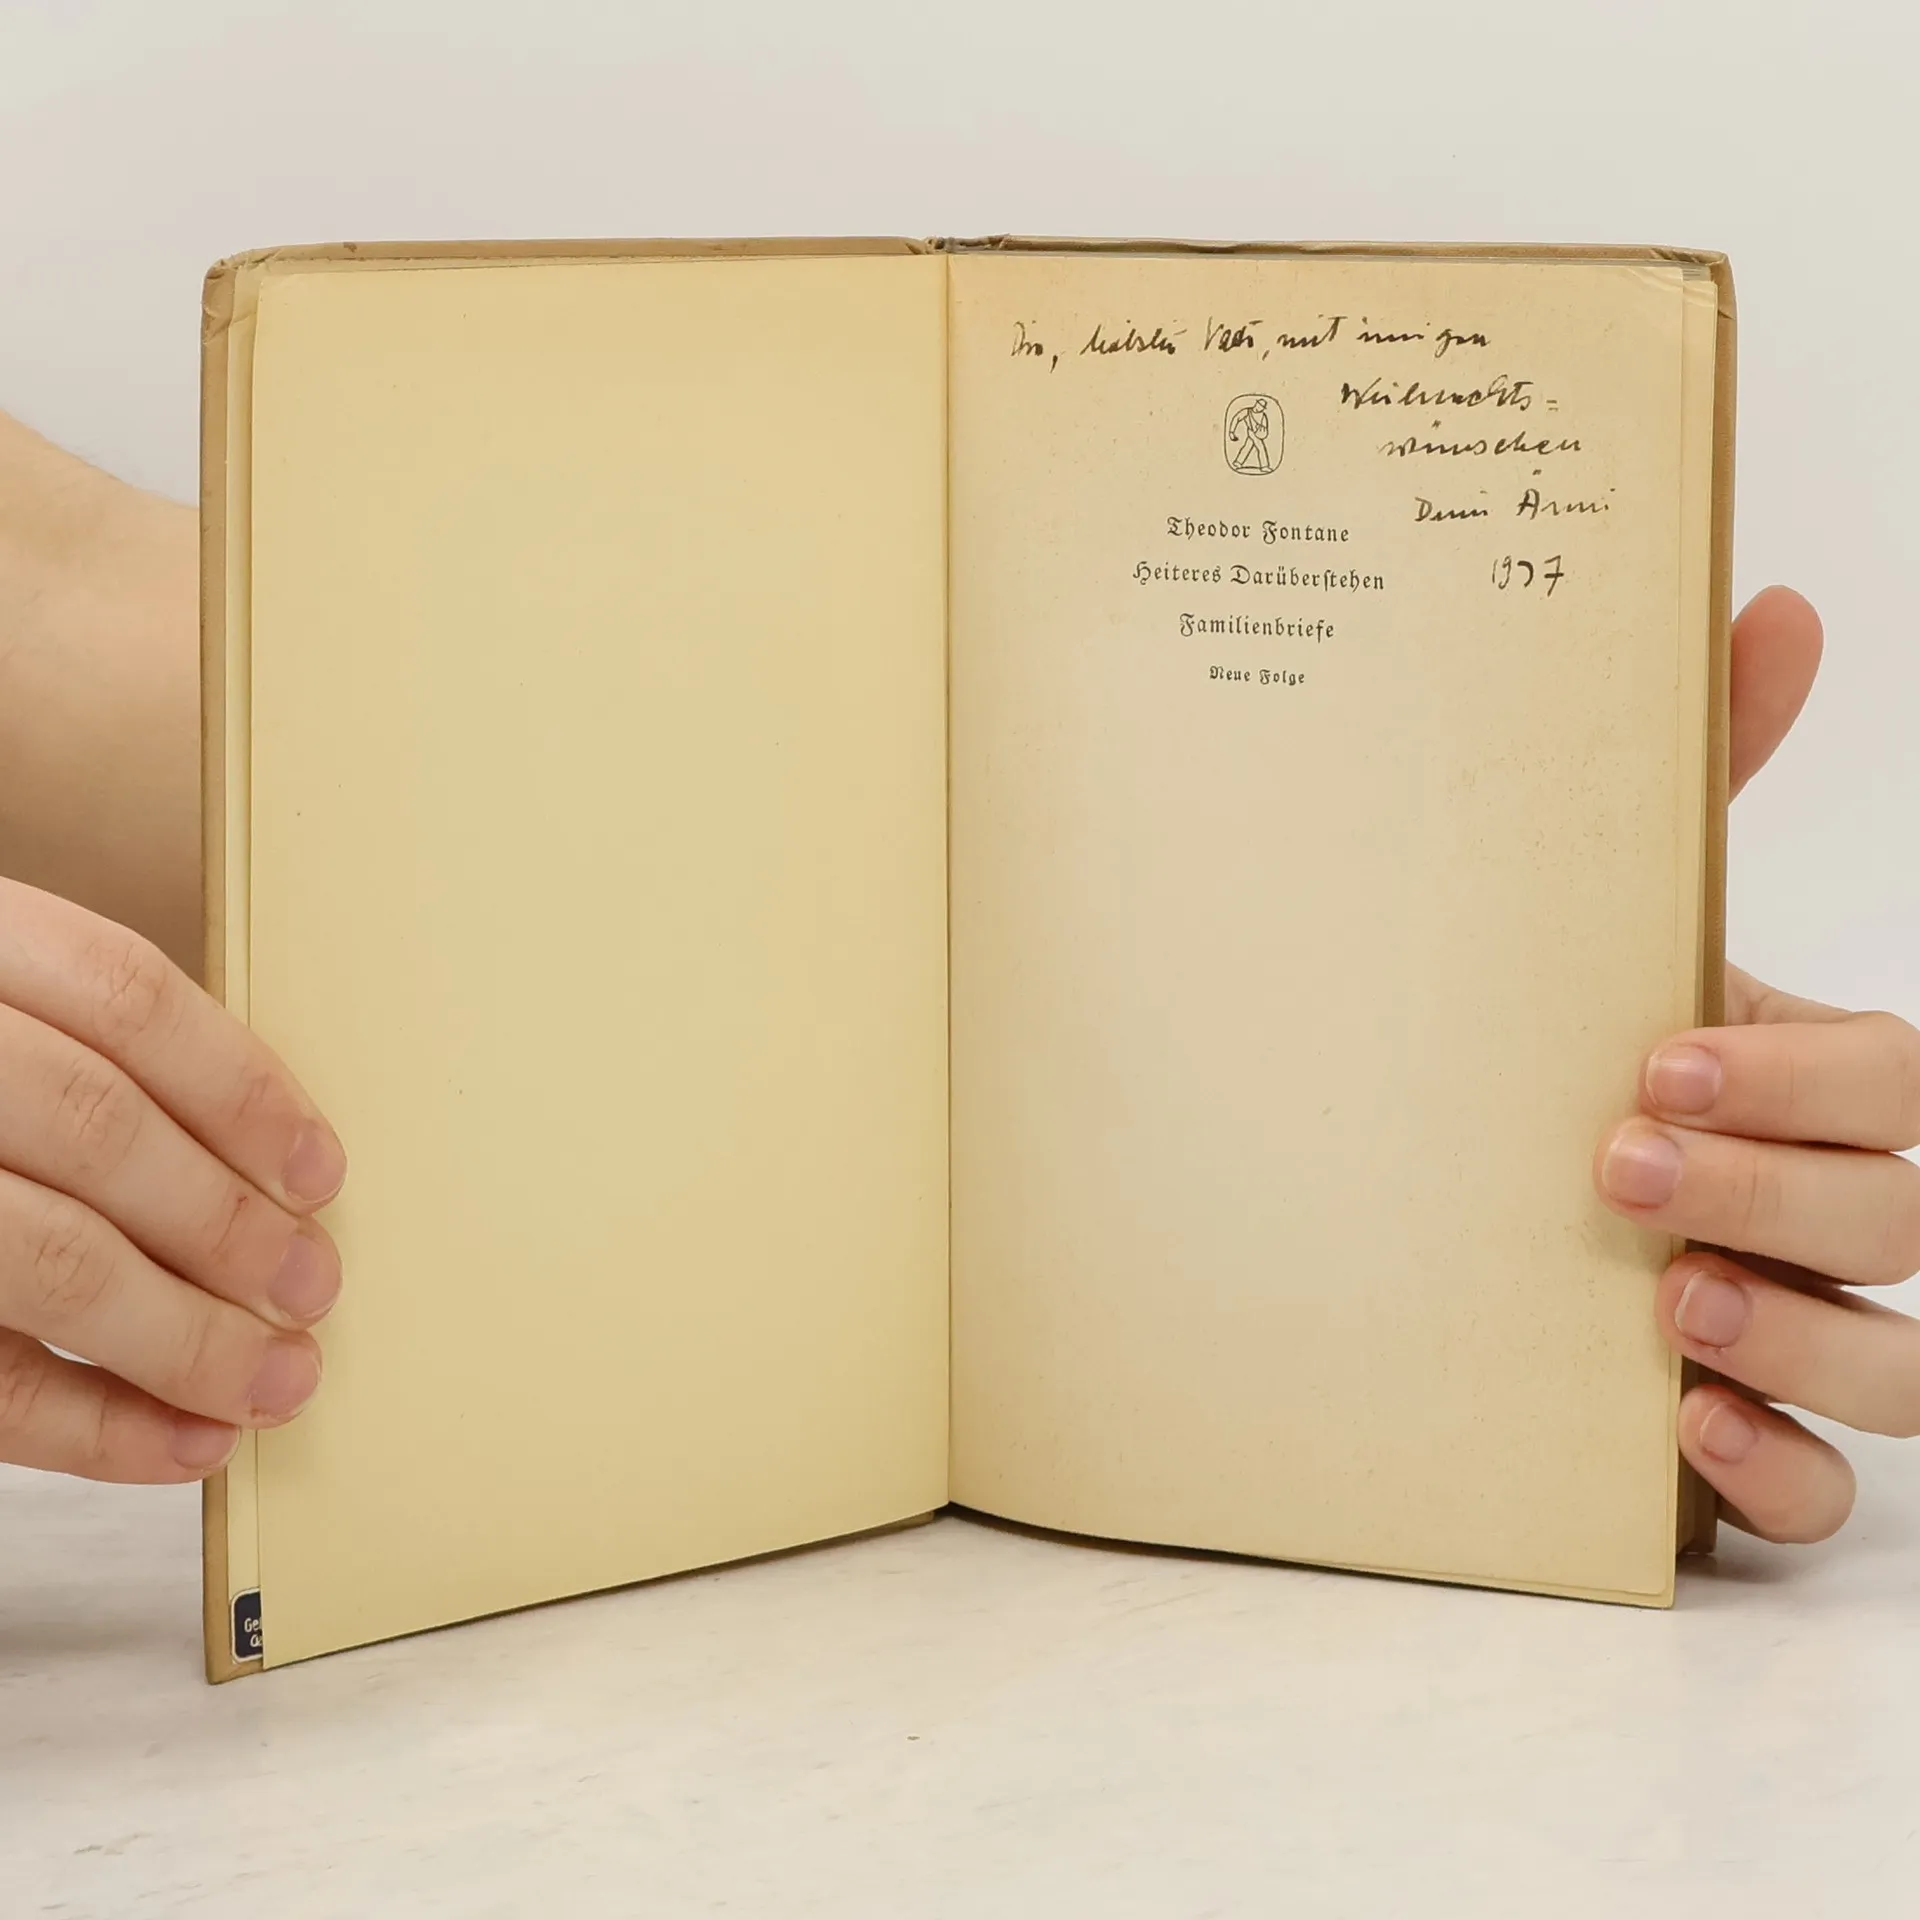 Dir, liebster Vater, mit innigen
Weihnachts=
wünschen
Dein Ärmi
1937
Theodor Fontane
Heiteres Darüberstehen
Familienbriefe
Neue Folge